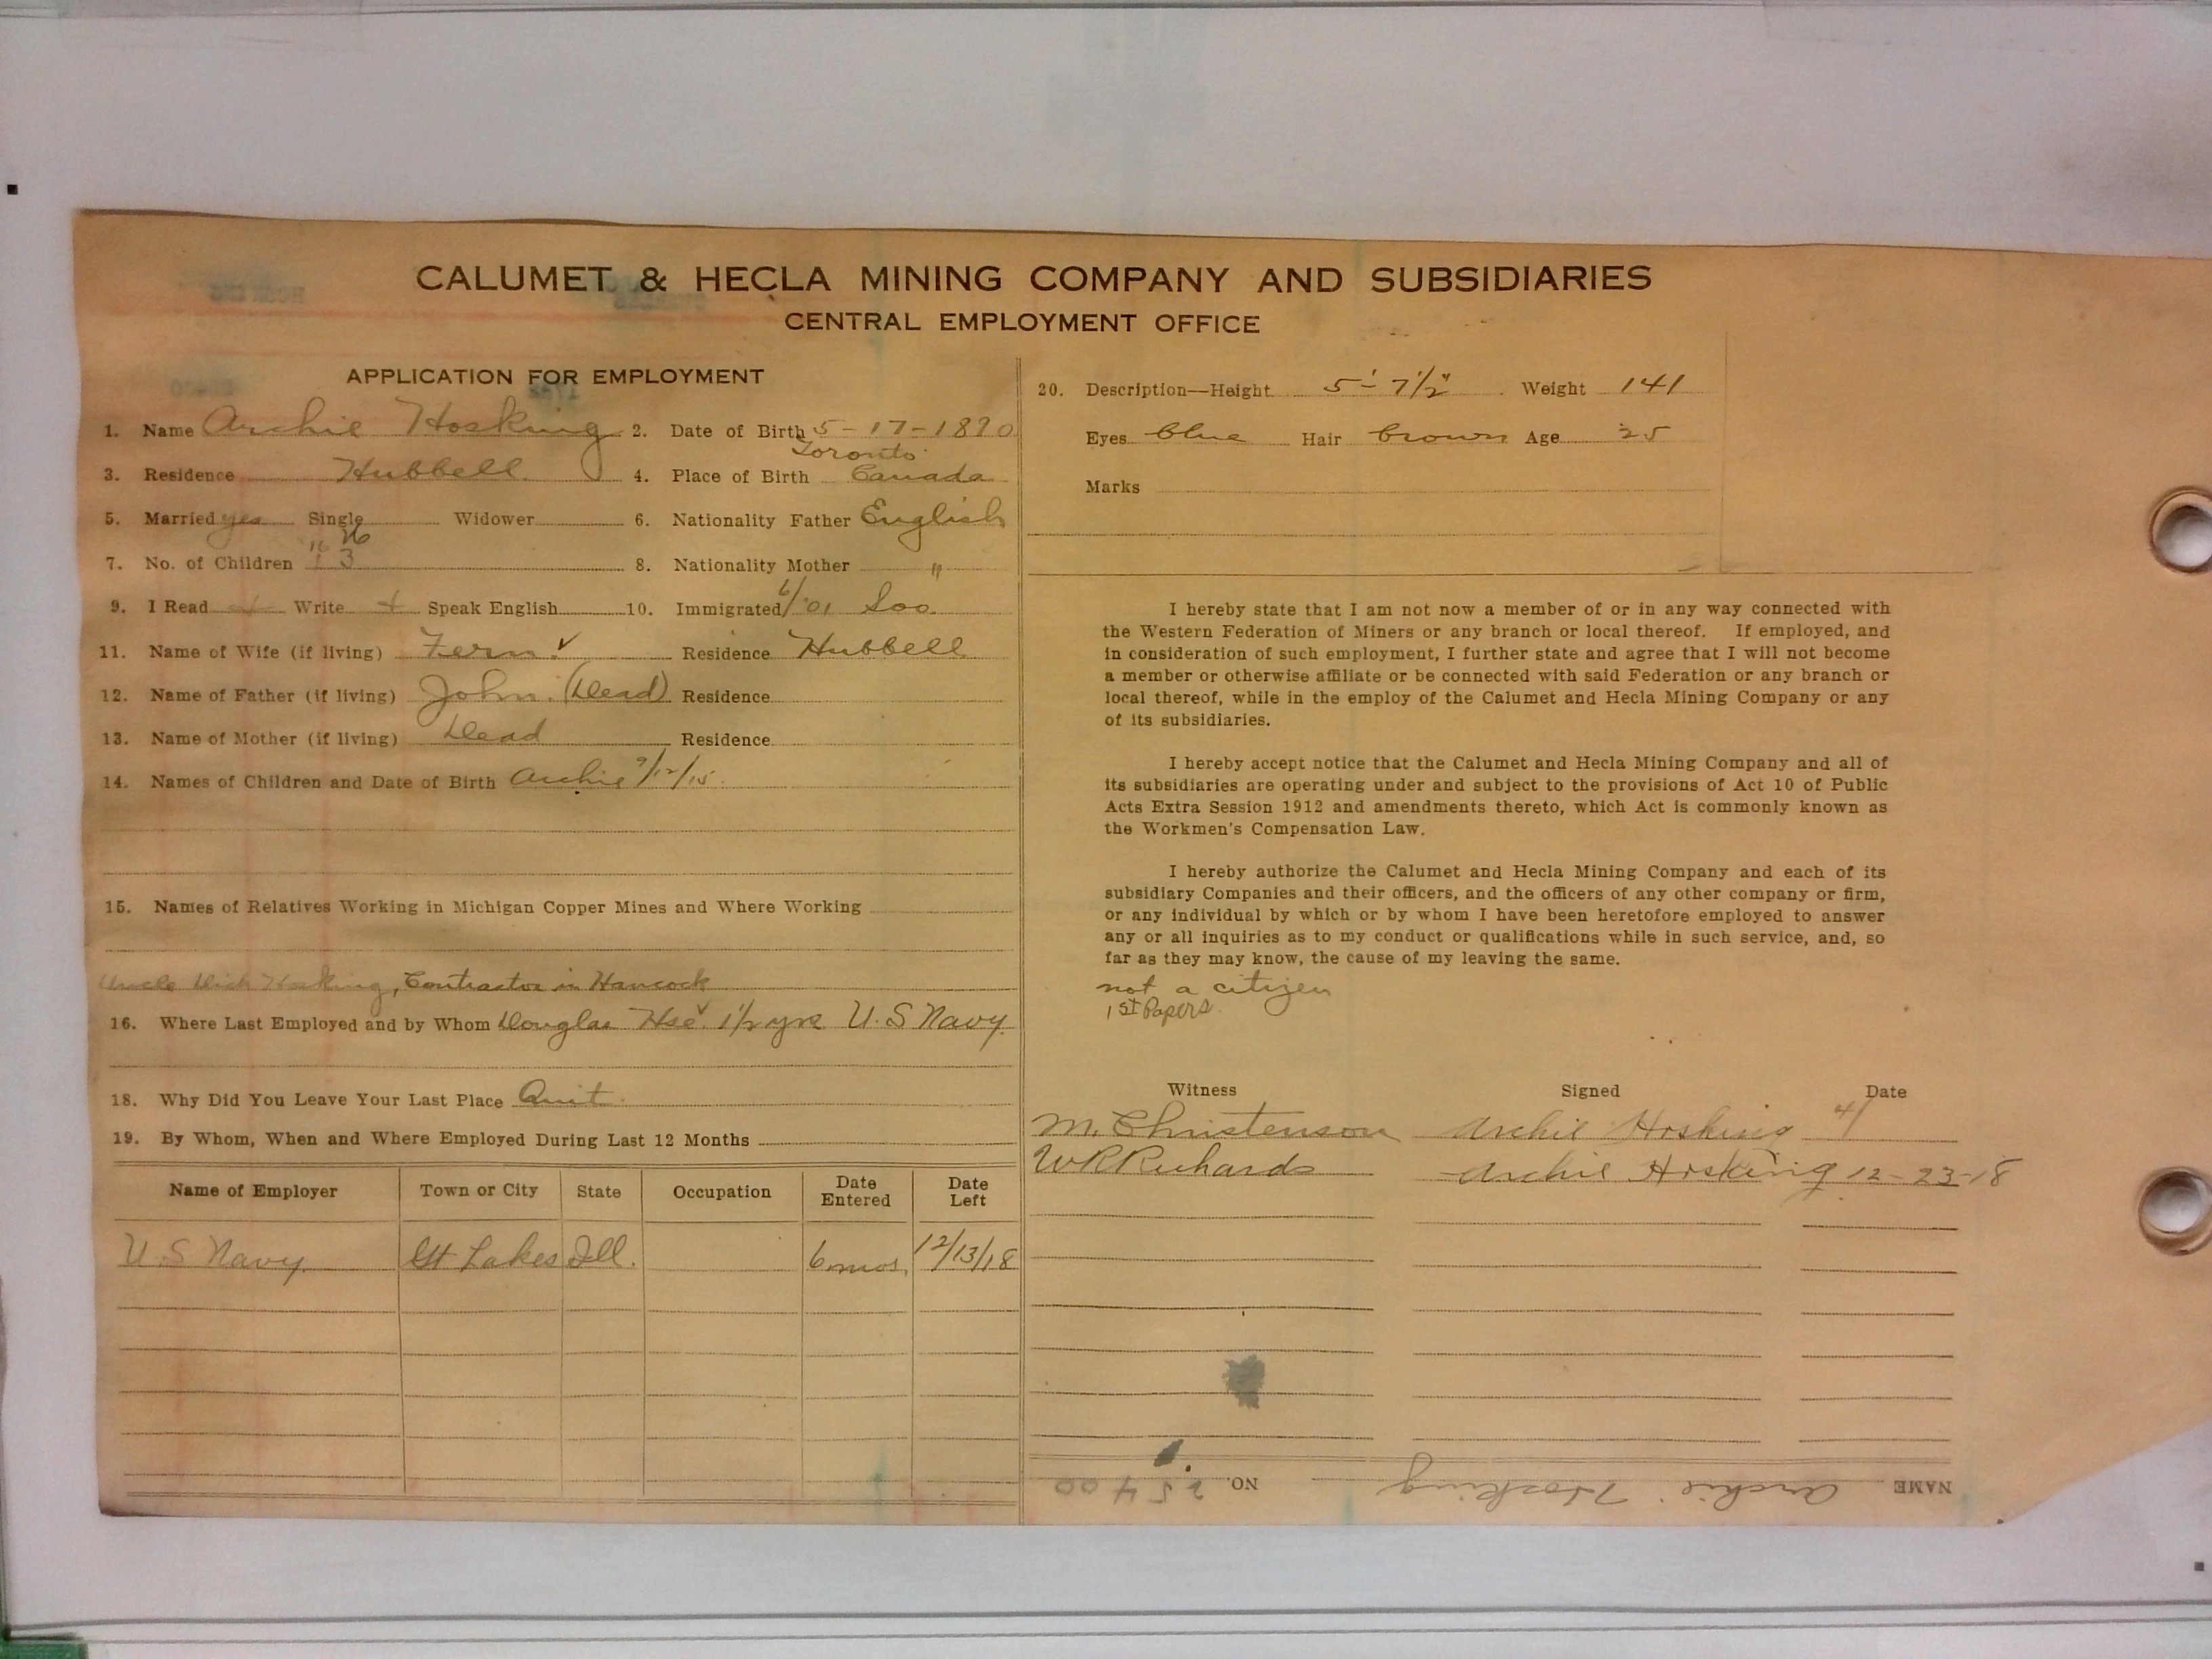 CALUMET & HECLA MINING COMPANY AND SUBSIDIARIES
CENTRAL EMPLOYMENT OFFICE
APPLICATION FOR EMPLOYMENT
1. Name Archie Hosking 2. Date of Birth 5-17-1890
3. Residence Hubbell 4. Place of Birth Toronto Canada
5. Married yes Single Widower 6. Nationality Father English
7. No. of Children 3 8. Nationality Mother "
9. I Read Write Speak English 10. Immigrated 6/'01 Soo
11. Name of Wife (if living) Fern Residence Hubbell
12. Name of Father (if living) John (Dead) Residence
13. Name of Mother (if living) Dead Residence
14. Names of Children and Date of Birth Archie 9/12/15
15. Names of Relatives Working in Michigan Copper Mines and Where Working
Uncle Dick Hosking, Contractor in Hancock
16. Where Last Employed and by Whom Douglas Hse 1½ yrs U.S Navy
18. Why Did You Leave Your Last Place Quit
19. By Whom, When and Where Employed During Last 12 Months
Name of Employer Town or City State Occupation Date Entered Date Left
U.S Navy Gt Lakes Ill. 6 mos. 12/13/18
20. Description—Height 5'-7½" Weight 141
Eyes blue Hair brown Age 25
Marks
I hereby state that I am not now a member of or in any way connected with
the Western Federation of Miners or any branch or local thereof. If employed, and
in consideration of such employment, I further state and agree that I will not become
a member or otherwise affiliate or be connected with said Federation or any branch or
local thereof, while in the employ of the Calumet and Hecla Mining Company or any
of its subsidiaries.
I hereby accept notice that the Calumet and Hecla Mining Company and all of
its subsidiaries are operating under and subject to the provisions of Act 10 of Public
Acts Extra Session 1912 and amendments thereto, which Act is commonly known as
the Workmen's Compensation Law.
I hereby authorize the Calumet and Hecla Mining Company and each of its
subsidiary Companies and their officers, and the officers of any other company or firm,
or any individual by which or by whom I have been heretofore employed to answer
any or all inquiries as to my conduct or qualifications while in such service, and, so
far as they may know, the cause of my leaving the same.
not a citizen
1st Papers
Witness Signed Date
M. Christenson Archie Hosking 4/
W R Richards Archie Hosking 12-23-18
NAME Archie Hosking NO. 25400